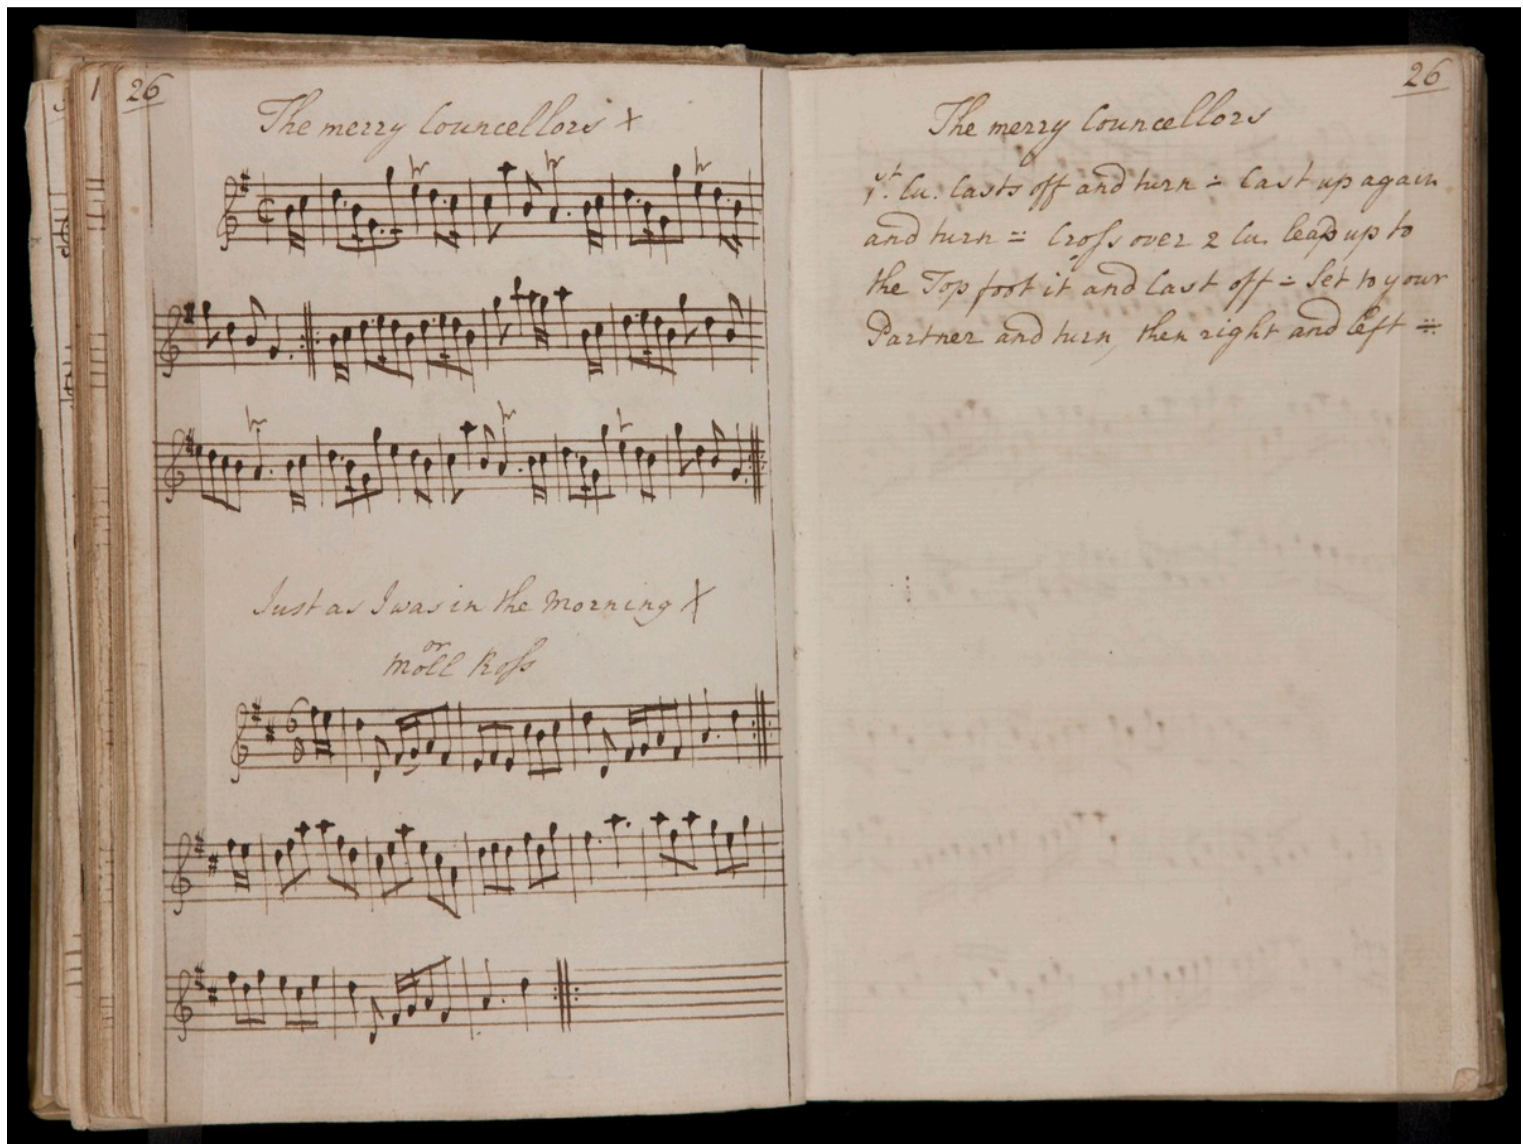 26
The merry Councellors +
Just as I was in the Morning X
or
Moll Ross
26
The merry Councellors
1.st Cu. Casts off and turn ÷ Cast up again
and turn = Cross over 2 Cu. lead up to
the Top foot it and Cast off ÷ Set to your
Partner and turn, then right and left ÷